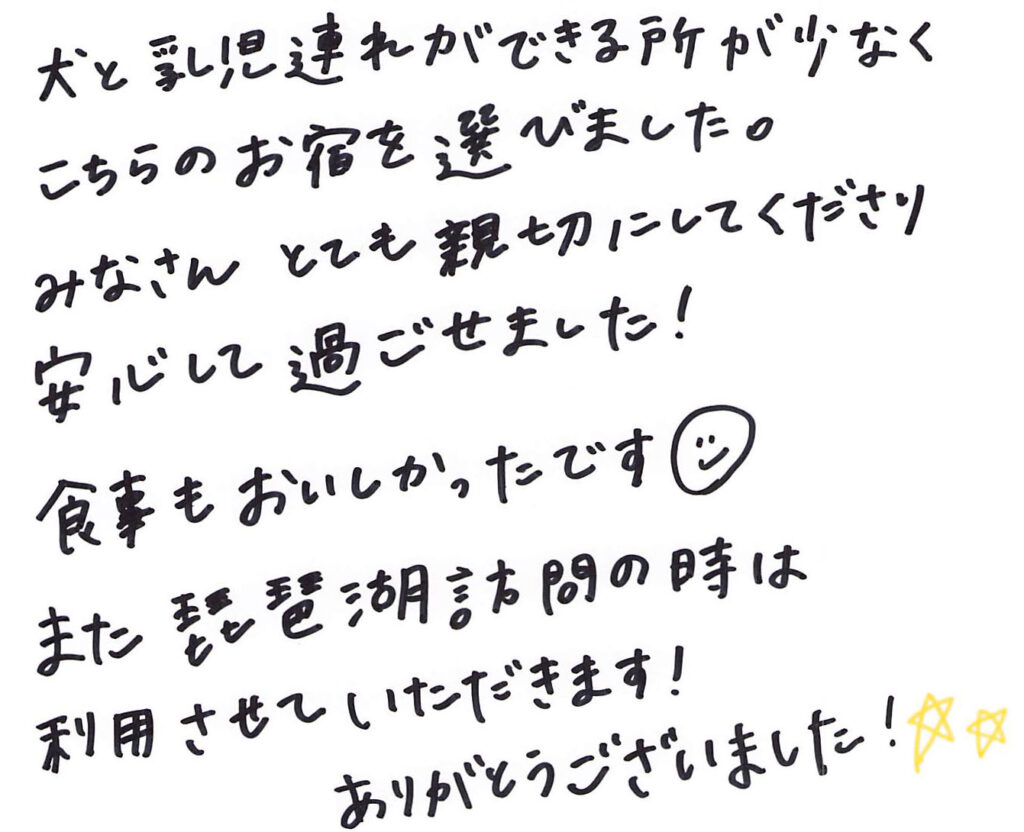 犬と乳児連れができる所が少なく
こちらのお宿を選びました。
みなさん とても親切にしてくださり
安心して過ごせました!
食事もおいしかったです
また琵琶湖訪問の時は
利用させていただきます!
ありがとうございました!